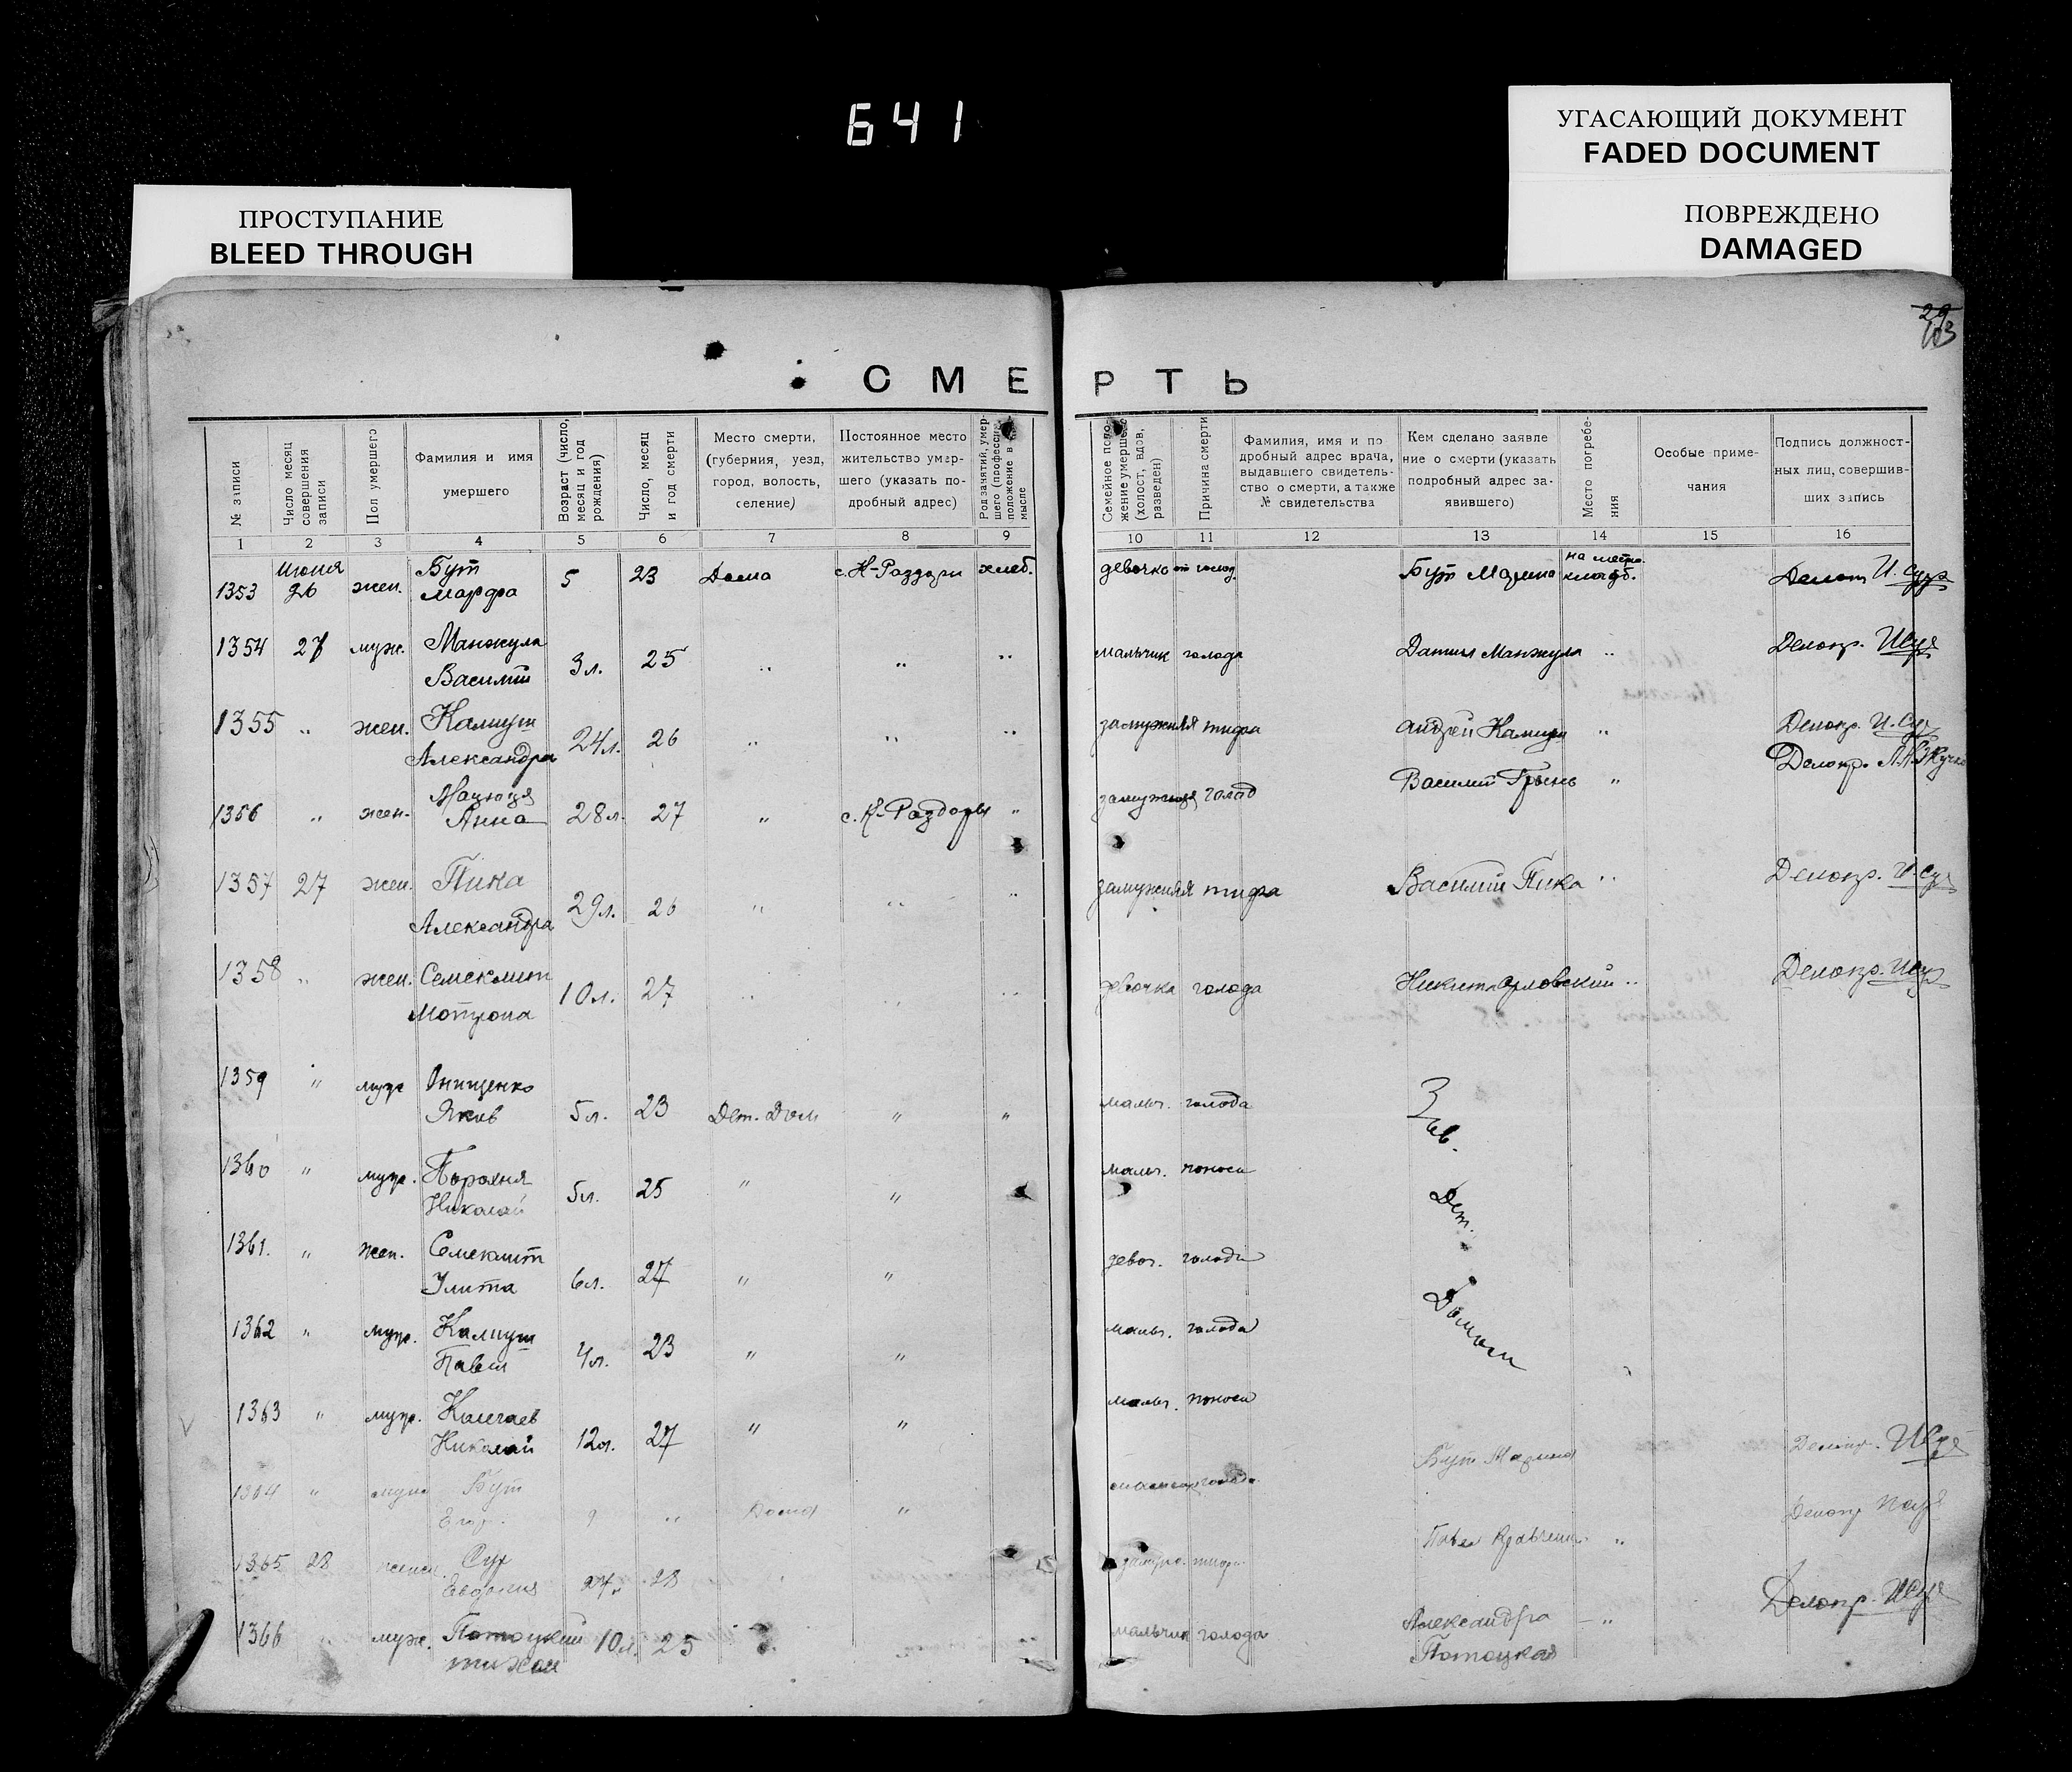 641
УГАСАЮЩИЙ ДОКУМЕНТ
FADED DOCUMENT
ПОВРЕЖДЕНО
DAMAGED
ПРОСТУПАНИЕ
BLEED THROUGH
29
103
СМЕРТЬ
№ записи
Число месяц совершения записи
Пол умершего
Фамилия и имя умершего
Возраст (число, месяц и год рождения)
Число, месяц и год смерти
Место смерти, (губерния, уезд, город, волость, селение)
Постоянное место жительство умершего (указать подробный адрес)
Род занятий, умершего (профессия, положение в промысле
Семейное положение умершего (холост, вдов, разведен)
Причина смерти
Фамилия, имя и подробный адрес врача, выдавшего свидетельство о смерти, а также № свидетельства
Кем сделано заявление о смерти (указать подробный адрес заявившего)
Место погребения
Особые примечания
Подпись должностных лиц, совершивших запись
1 2 3 4 5 6 7 8 9 10 11 12 13 14 15 16
1353 Июня 26 жен. Бут Марфа 5 23 Дома с. Н-Раздоры хлеб. девочка от голод. Бут Марина на местн. кладб. И. Сур
1354 27 муж. Манжула Василий 3 л. 25 " " " мальчик голода Данил Манжула " Делопр.
1355 " жен. Калиуш Александра 24 л. 26 " " " замужняя тифа Андрей Калиуш " Делопр.
1356 " жен. Анна 28 л. 27 " с. Н-Раздоры " замужняя голод Василий Гринь " Делопр.
1357 27 жен. Пика Александра 29 л. 26 " " " замужняя тифа Василий Пика " Делопр.
1358 " жен. Семеклит Мотрона 10 л. 27 " " " девочка голода Никита Орловский " Делопр.
1359 " муж Онищенко Яков 5 л. 23 Дет. Дом " " мальч. голода Зав. Дет. Домом
1360 " муж. Порохня Николай 5 л. 25 " " мальч. поноса
1361. " жен. Семеклит Улита 6 л. 27 " " девоч. голода
1362 " муж. Калиуш Павел 4 л. 23 " " мальч. голода
1363 " муж. Николай 12 л. 27 " " мальч. поноса
1364 " Бут Егор 9 " Дома " голода Бут Марина Делопр.
1365 28 Сур Евдокия 28 тифа Павел Кравченко " Делопр
1366 " муж. Потоцкий Тихон 10 л. 25 " " " мальчик голода Александра Потоцкая " Делопр.